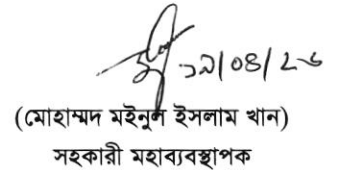 ১৯/০৪/২৬
(মোহাম্মদ মইনুল ইসলাম খান)
সহকারী মহাব্যবস্থাপক